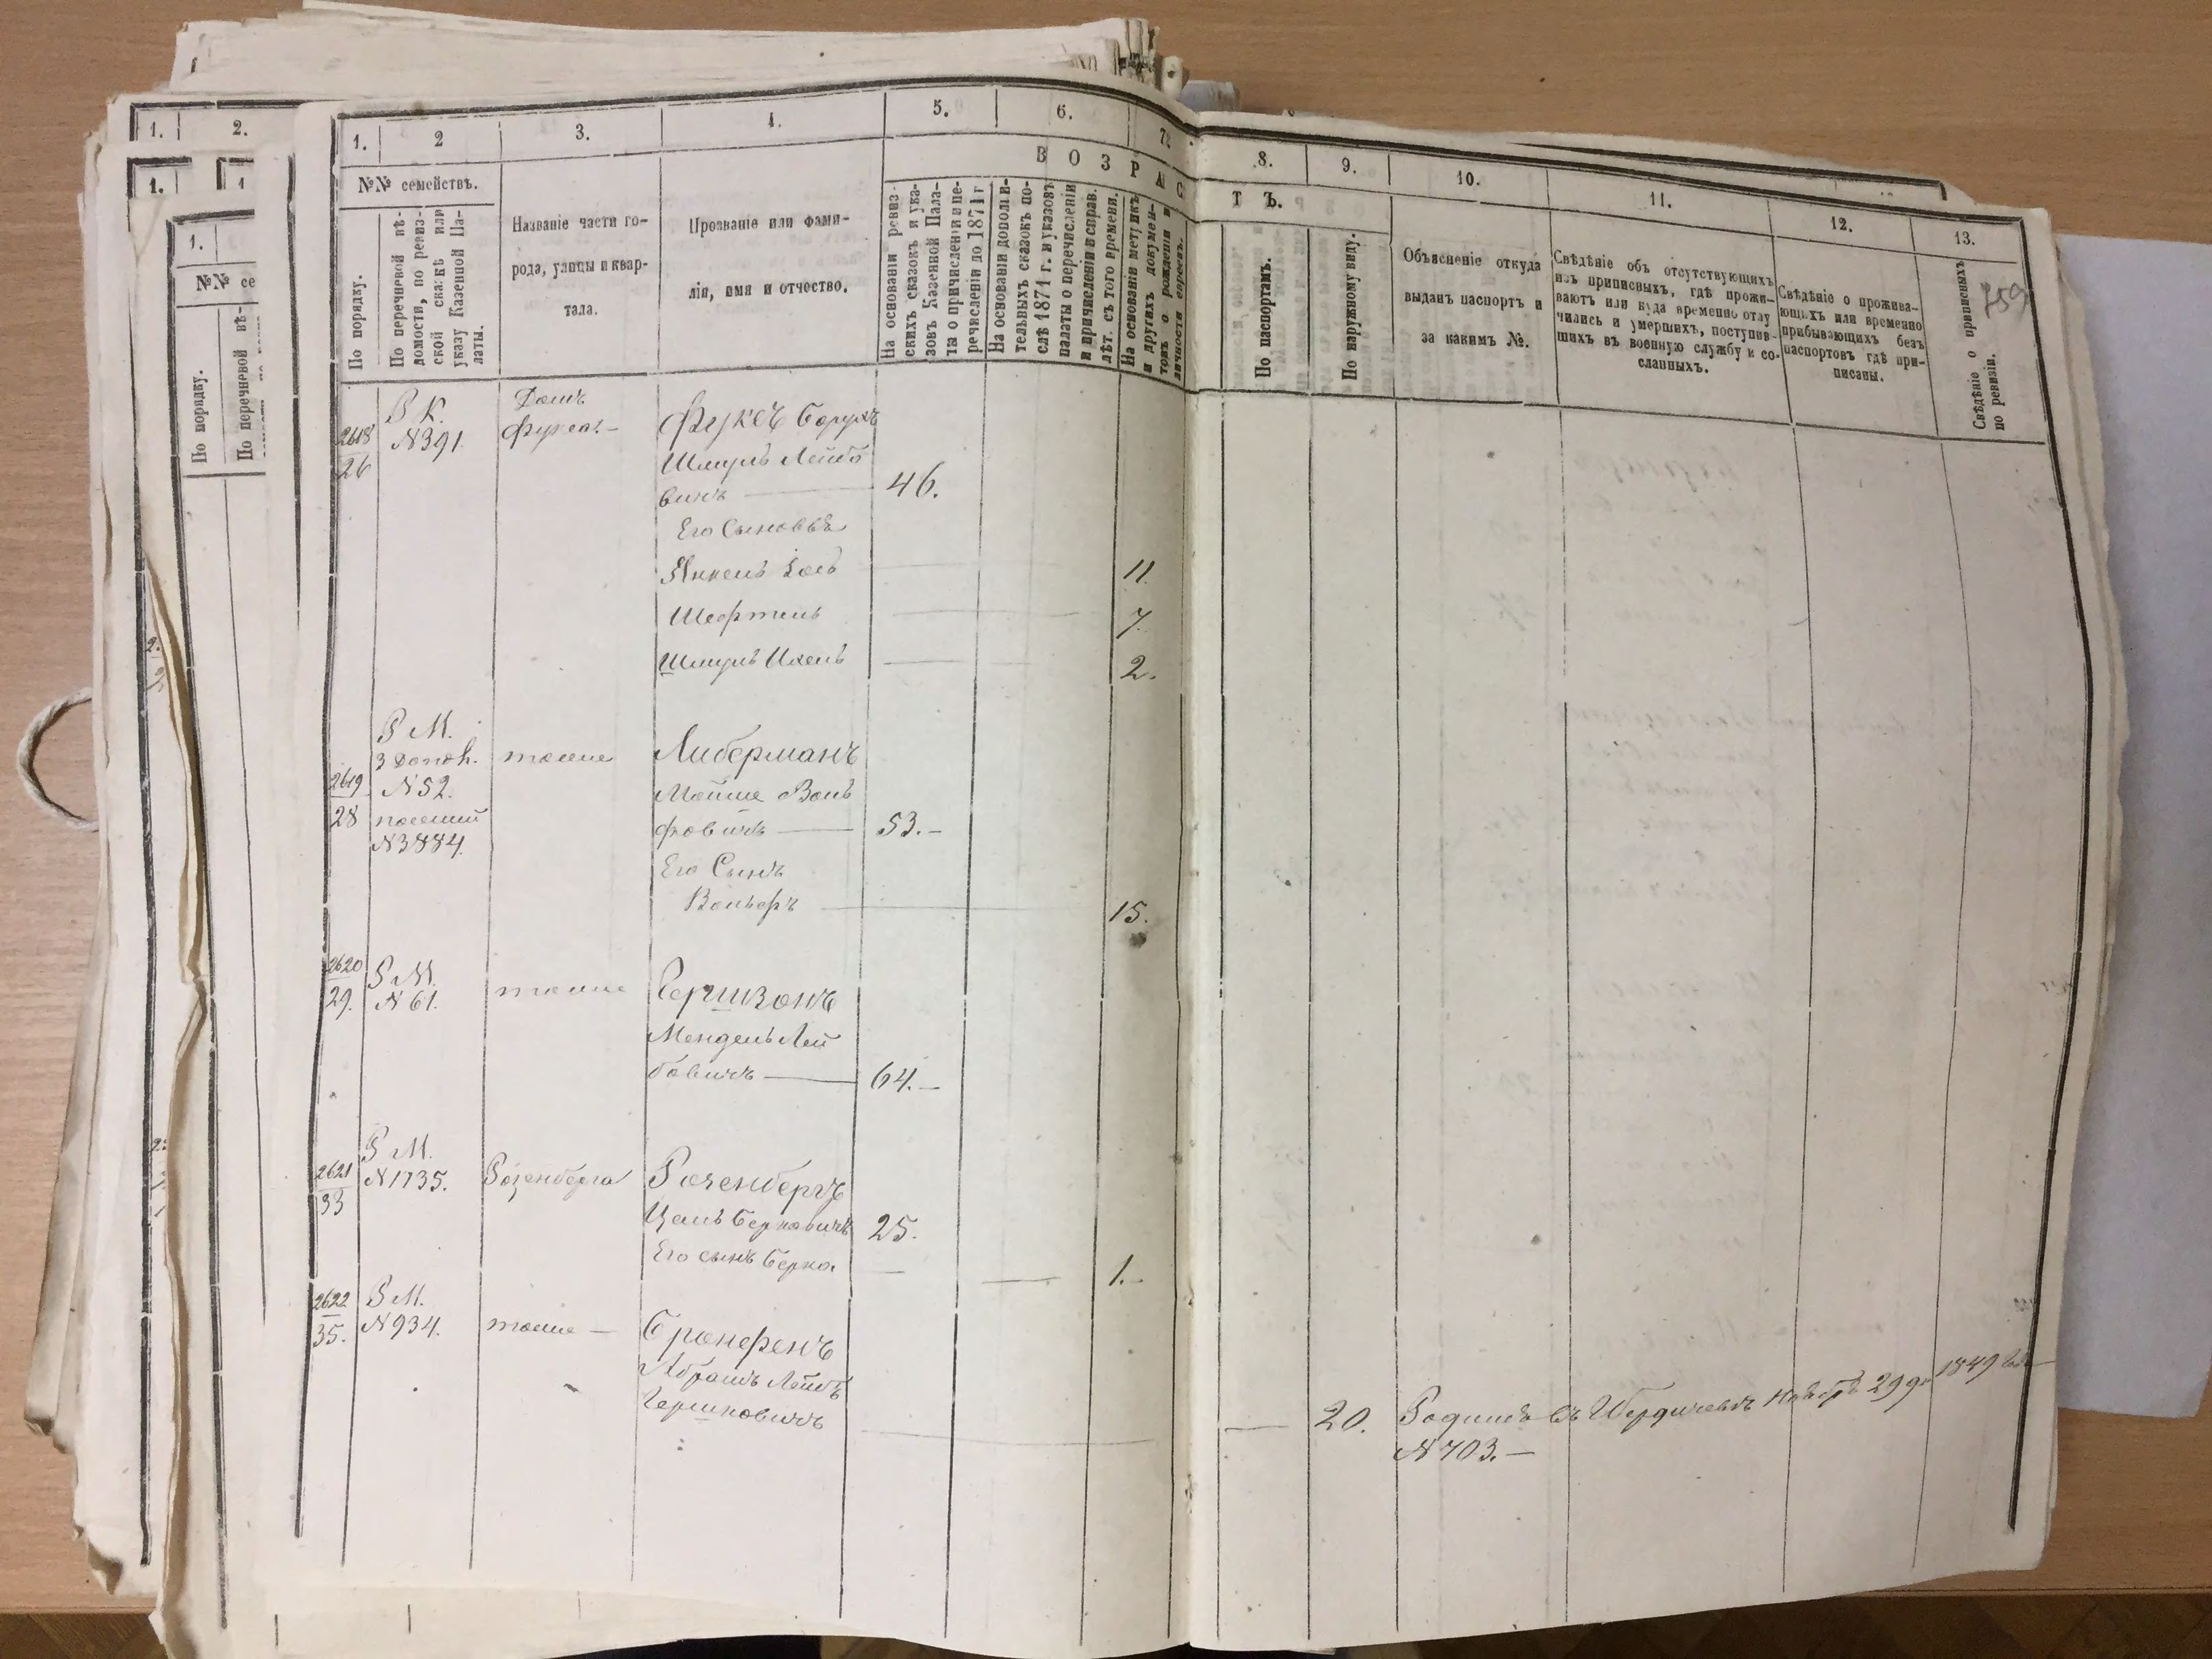 1.
2.
1.
1
1.
№№ се
По порядку.
По перечневой вѣ-
1.
2
3.
4.
5.
6.
7
8.
9.
10.
11.
12.
13.
ВОЗРАС
ТЪ.
№№ семействъ.
По порядку.
По перечневой вѣ-
домости, по ревиз-
ской сказкѣ или
указу Казенной Па-
латы.
Названіе части го-
рода, улицы и квар-
тала.
Прозваніе или фами-
лія, имя и отчество.
На основаніи ревиз-
скихъ сказокъ и ука-
зовъ Казенной Пала-
ты о причисленіи и пе-
речисленіи до 1871 г
На основаніи дополни-
тельныхъ сказокъ по-
слѣ 1871 г. и указовъ
палаты о перечисленіи
и причисленіи и справ.
лѣт. съ того времени.
На основаніи метрикъ
и другихъ докумен-
товъ о рожденіи и
личности евреевъ.
По паспортамъ.
По наружному виду.
Объясненіе откуда
выданъ паспортъ и
за какимъ №.
Свѣдѣніе объ отсутствующихъ
изъ приписныхъ, гдѣ прожи-
ваютъ или куда временно отлу
чились и умершихъ, поступив-
шихъ въ военную службу и со-
сланныхъ.
Свѣдѣніе о прожива-
ющихъ или временно
прибывающихъ безъ
паспортовъ гдѣ при-
писаны.
Свѣдѣніе о приписныхъ
по ревизіи.
759
2618
26
Р К.
N391.
Домъ
Фукса.
Фуксъ Борухъ
Шмуль Лейбо
вичъ 46.
Его Сыновья
Янкель 11.
Шефтель 7.
Шмуль 2.
2619
28
Р М.
N52.
N3884.
тоже
Либерманъ
Мойше Воль
фовичъ 53.
Его Сынъ
Вольфъ 15.
2620
29.
Р М.
N61.
тоже
Гершзонъ
Мендель Лей
бовичъ 64.
2621
33
Р М.
N1735.
Розенберга
Розенбергъ
Берковичъ 25.
Его сынъ Берко. 1.
2622
35.
Р М.
N934.
тоже
Бронфенъ
Абрамъ Лейбъ
Гершковичъ 20.
Родился въ Бердичевѣ 29 1849
N703.